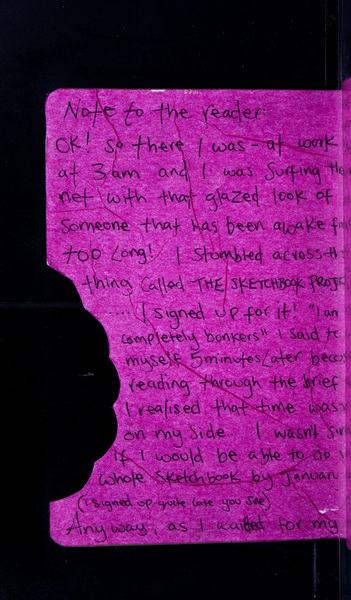 Note to the reader:
OK! So there I was - at work
at 3am and I was surfing the
net with that glazed look of
someone that has been awake for
too long! I stumbled across th
thing called THE SKETCHBOOK PROJE
..... I signed up for it! "I am
completely bonkers" I said to
myself 5minutes Later becau
reading through the brief
I realised that time was
on my side. I wasn't
if I would be able to do
whole sketchbook by January
(I signed up quite late you see)
Anyway, as I waited for my